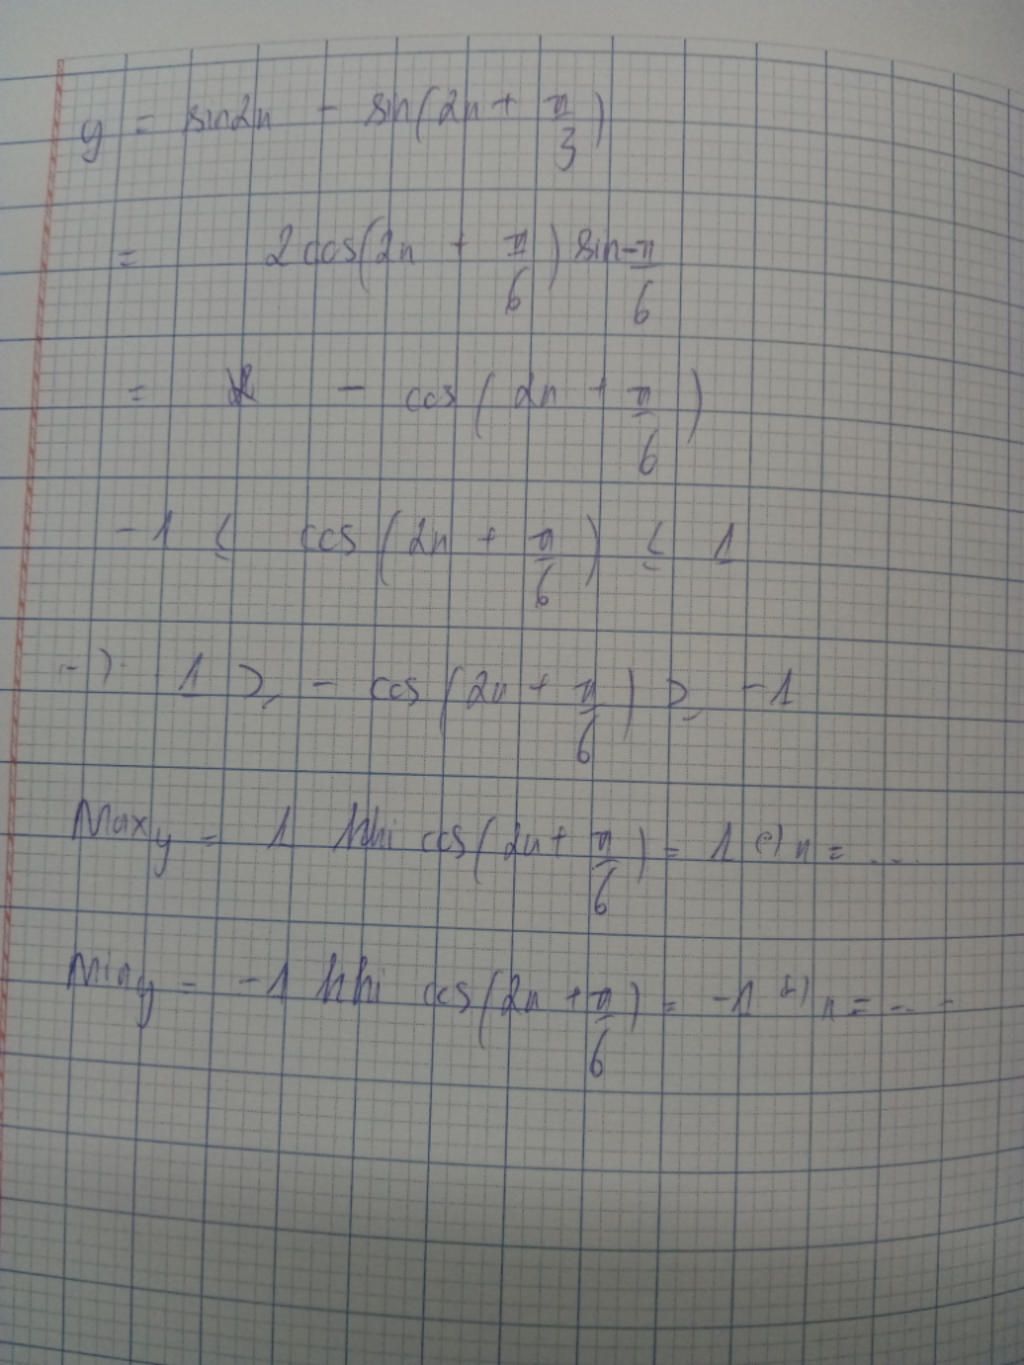 y = sin2x - sin(2x + π/3)
= 2cos(2x + π/6) sin -π/6
= - cos(2x + π/6)
-1 ≤ cos(2x + π/6) ≤ 1
-) 1 ≥ - cos(2x + π/6) ≥ -1
Max y = 1 khi cos(2x + π/6) = 1 (=) x = ...
Min y = -1 khi cos(2x + π/6) = -1 (=) x = ...